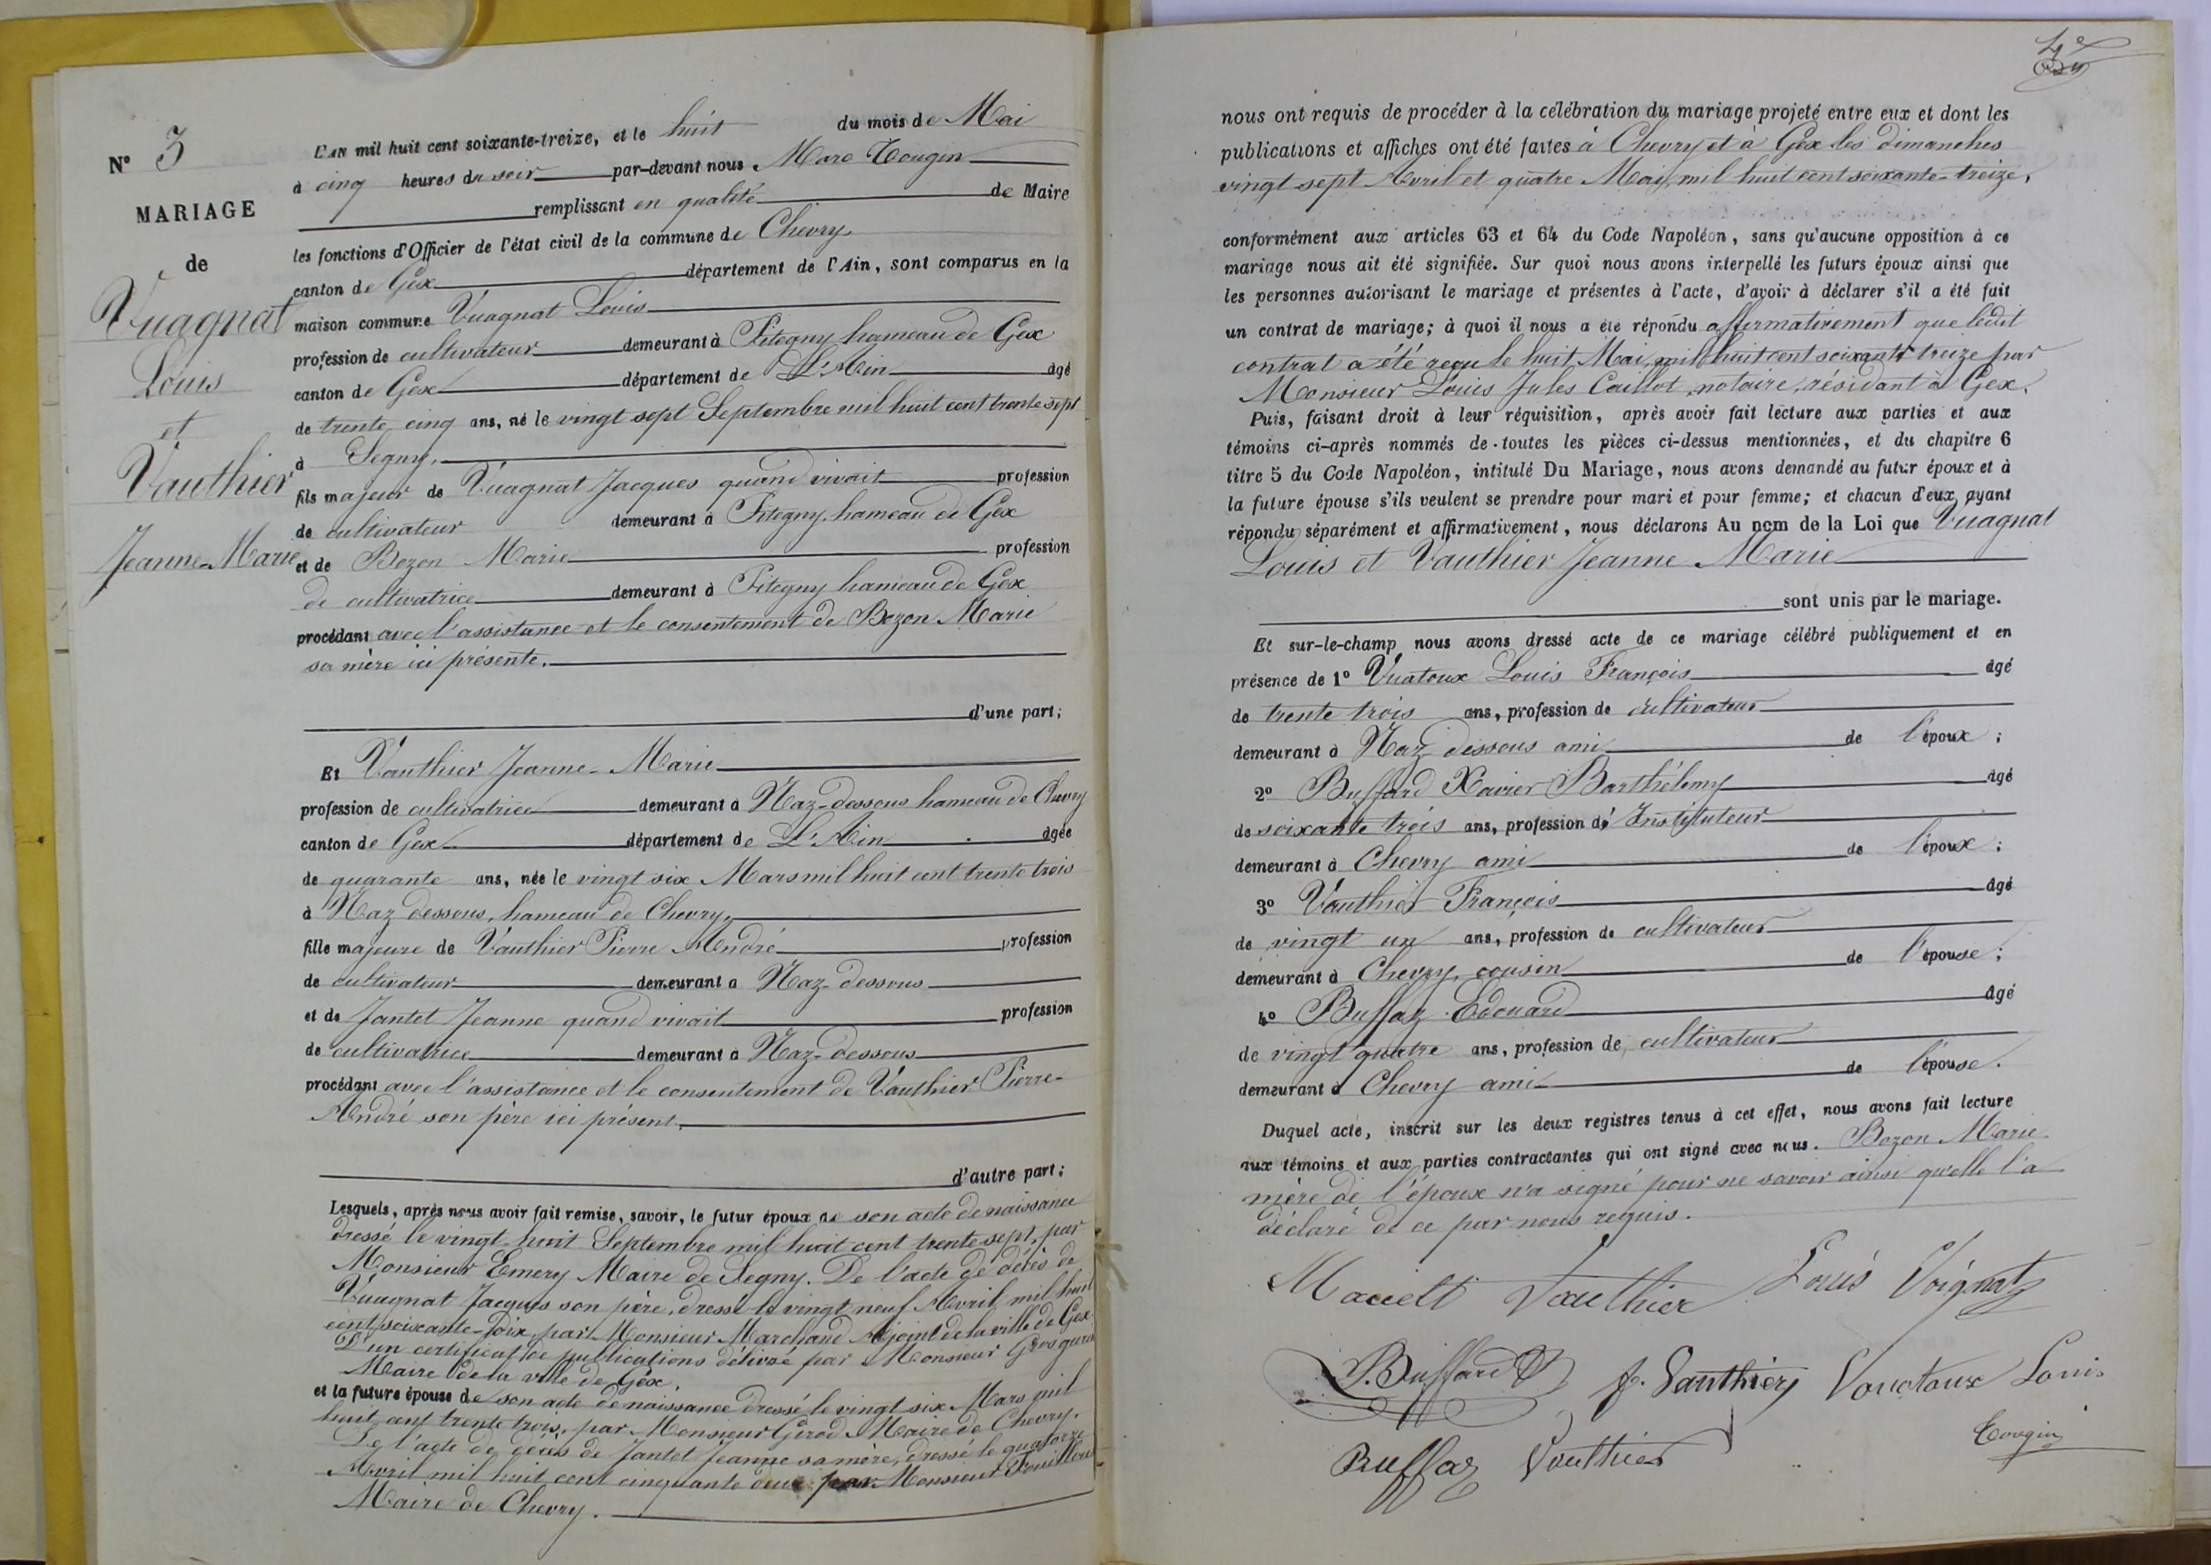 N° 3
MARIAGE
de
Vuagnat
Louis
et
Vauthier
Jeanne-Marie
L'AN mil huit cent soixante-treize, et le huit du mois de Mai
à cinq heures du soir par-devant nous Marc Tougin
remplissant en qualité de Maire
les fonctions d'Officier de l'état civil de la commune de Chevry,
canton de Gex département de l'Ain, sont comparus en la
maison commune Vuagnat Louis
profession de cultivateur demeurant à Pitegny hameau de Gex
canton de Gex département de L'Ain âgé
de trente cinq ans, né le vingt sept Septembre mil huit cent trente sept
à Segny,
fils majeur de Vuagnat Jacques quand vivait profession
de cultivateur demeurant à Pitegny, hameau de Gex
et de Bozon Marie profession
de cultivatrice demeurant à Pitegny hameau de Gex
procédant avec l'assistance et le consentement de Bozon Marie
sa mère ici présente.
d'une part;
Et Vauthier Jeanne-Marie
profession de cultivatrice demeurant à Naz-dessous hameau de Chevry
canton de Gex département de L'Ain âgée
de quarante ans, née le vingt six Mars mil huit cent trente trois
à Naz dessous, hameau de Chevry,
fille majeure de Vauthier Pierre André profession
de cultivateur demeurant à Naz-dessous
et de Jantet Jeanne quand vivait profession
de cultivatrice demeurant à Naz-dessous
procédant avec l'assistance et le consentement de Vauthier Pierre-
André son père ici présent,
d'autre part;
Lesquels, après nous avoir fait remise, savoir, le futur époux de son acte de naissance
dressé le vingt-huit Septembre mil huit cent trente sept, par
Monsieur Emery Maire de Segny. De l'acte de décès de
Vuagnat Jacques son père, dressé le vingt neuf Avril mil huit
cent soixante-dix, par Monsieur Marchand Adjoint de la ville de Gex.
D'un certificat de publications délivré par Monsieur Grosgurin
Maire de la ville de Gex,
et la future épouse de son acte de naissance dressé le vingt six Mars mil
huit cent trente trois, par Monsieur Girod Maire de Chevry.
De l'acte de décès de Jantet Jeanne sa mère, dressé le quatorze
Avril mil huit cent cinquante deux par Monsieur
Maire de Chevry.
4e
nous ont requis de procéder à la célébration du mariage projeté entre eux et dont les
publications et affiches ont été faites à Chevry et à Gex les dimanches
vingt sept Avril et quatre Mai, mil huit cent soixante-treize,
conformément aux articles 63 et 64 du Code Napoléon, sans qu'aucune opposition à ce
mariage nous ait été signifiée. Sur quoi nous avons interpellé les futurs époux ainsi que
les personnes autorisant le mariage et présentes à l'acte, d'avoir à déclarer s'il a été fait
un contrat de mariage; à quoi il nous a été répondu affirmativement que ledit
contrat a été reçu le huit Mai, mil huit cent soixante treize par
Monsieur Louis Jules Caillot, notaire, résidant à Gex.
Puis, faisant droit à leur réquisition, après avoir fait lecture aux parties et aux
témoins ci-après nommés de toutes les pièces ci-dessus mentionnées, et du chapitre 6
titre 5 du Code Napoléon, intitulé Du Mariage, nous avons demandé au futur époux et à
la future épouse s'ils veulent se prendre pour mari et pour femme; et chacun d'eux ayant
répondu séparément et affirmativement, nous déclarons Au nom de la Loi que Vuagnat
Louis et Vauthier Jeanne Marie
sont unis par le mariage.
Et sur-le-champ nous avons dressé acte de ce mariage célébré publiquement et en
présence de 1° Vuatoux Louis François âgé
de trente trois ans, profession de cultivateur
demeurant à Naz dessous ami de l'époux;
2° Buffard Xavier Barthélemy âgé
de soixante trois ans, profession d'Instituteur
demeurant à Chevry ami de l'époux;
3° Vauthier François âgé
de vingt un ans, profession de cultivateur
demeurant à Chevry, cousin de l'épouse;
4° Buffaz Edouard âgé
de vingt quatre ans, profession de cultivateur
demeurant à Chevry ami de l'épouse.
Duquel acte, inscrit sur les deux registres tenus à cet effet, nous avons fait lecture
aux témoins et aux parties contractantes qui ont signé avec nous. Bozon Marie
mère de l'époux n'a signé pour ne savoir ainsi qu'elle l'a
déclaré de ce par nous requis.
Vauthier Louis Voignat
Buffard f. Vauthier Vouatoux Louis
Buffaz Vauthier Tougin